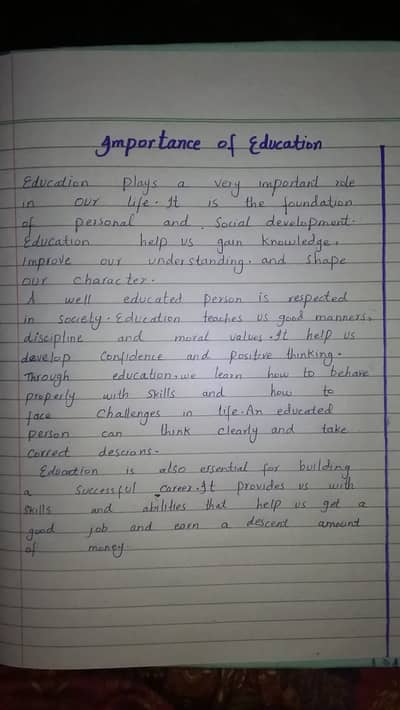 Importance of Education
Education plays a very important role
in our life. It is the foundation
of personal and social development.
Education help us gain knowledge,
improve our understanding, and shape
our character.
A well educated person is respected
in society. Education teaches us good manners,
discipline and moral values. It help us
develop confidence and positive thinking.
Through education, we learn how to behave
properly with skills and how to
face challenges in life. An educated
person can think clearly and take
correct descions.
Edcaction is also essential for building
a successful career. It provides us with
skills and abilities that help us get a
good job and earn a descent amount
of money.